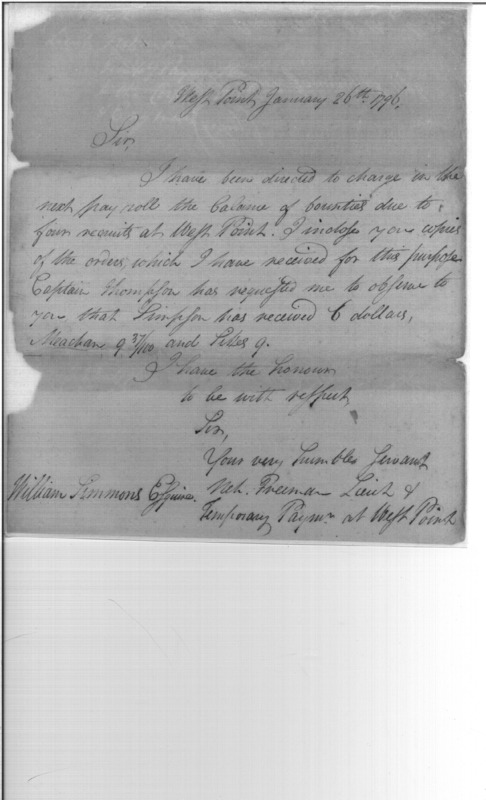 West Point January 26th. 1796.
Sir,
I have been directed to charge in the
next pay roll the balance of bounties due to
four recruits at West Point. I inclose you copies
of the orders, which I have received for this purpose
Captain Thompson has requested me to observe to
you that Simpson has received 6 dollars,
Meachan 9 37/100 and Sikes 9.
I have the honour
to be with respect
Sir,
Your very humble Servant
William Simmons Esquire. Neh. Freeman Lieut &
Temporary Paymr at West Point